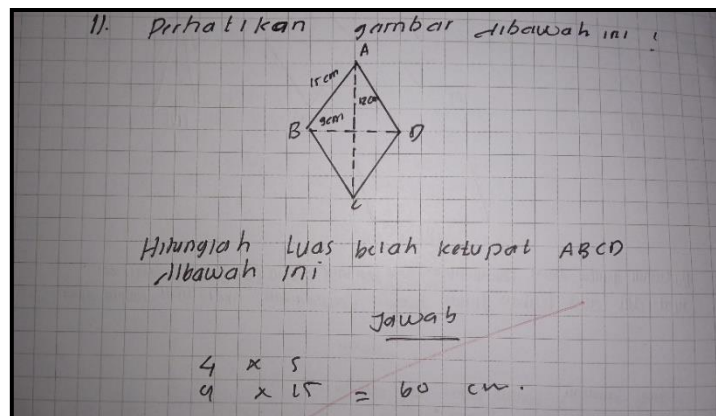 11. Perhatikan gambar dibawah ini !
A
15 cm
12cm
9cm
B
D
C
Hitunglah luas belah ketupat ABCD
dibawah ini
Jawab
4 x s
4 x 15 = 60 cm.